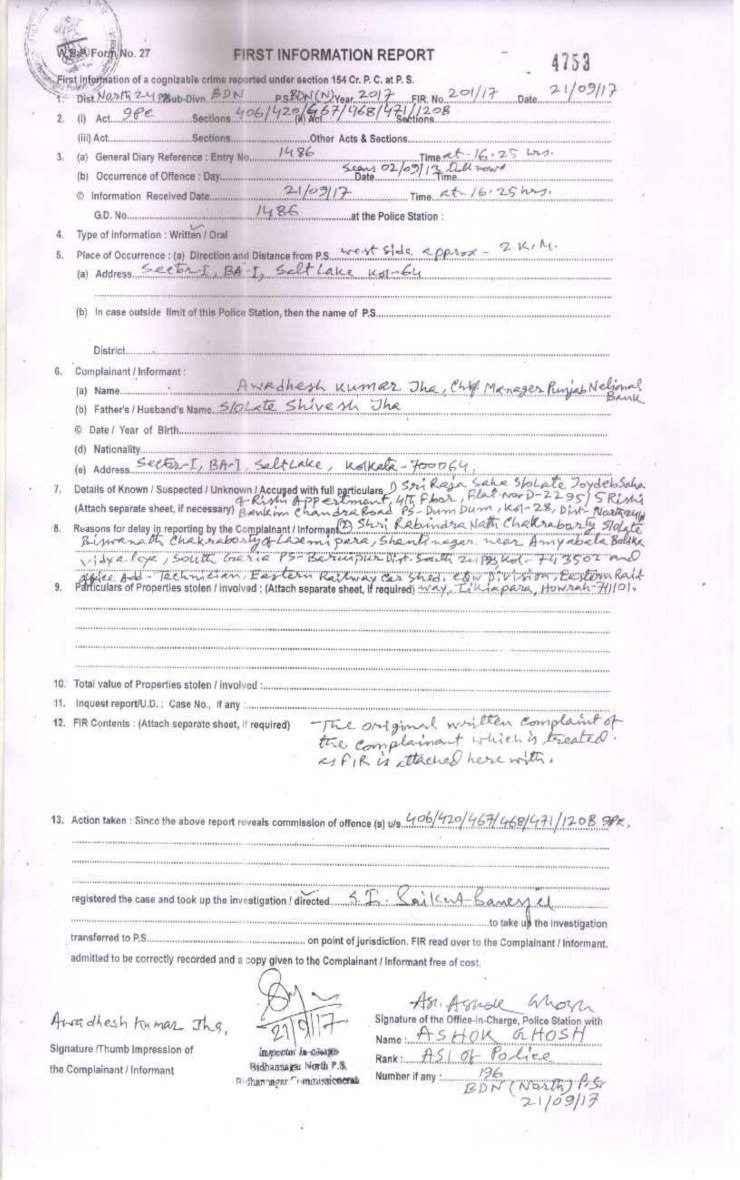 W.B.P. Form No. 27
FIRST INFORMATION REPORT
4753
First Information of a cognizable crime reported under section 154 Cr. P. C. at P. S.
1. Dist. North 24 Pgs Sub-Divn. BDN P.S. BDN(N) Year 2017 FIR. No. 201/17 Date 21/09/17
2. (i) Act IPC Sections 406/420/467/468/471/120B (ii) Act Sections
(iii) Act Sections Other Acts & Sections
3. (a) General Diary Reference : Entry No. 1486 Time at - 16.25 hrs.
(b) Occurrence of Offence : Day Date 02/09/13 till now Time
© Information Received Date 21/09/17 Time at - 16.25 hrs.
G.D. No. 1486 at the Police Station :
4. Type of information : Written / Oral
5. Place of Occurrence : (a) Direction and Distance from P.S. west side approx - 2 K.M.
(a) Address Sector-I, BA-I, Salt Lake Kol-64
(b) In case outside limit of this Police Station, then the name of P.S.
District
6. Complainant / Informant :
(a) Name Awadhesh Kumar Jha, Chief Manager Punjab National Bank
(b) Father's / Husband's Name S/O Late Shivesh Jha
© Date / Year of Birth
(d) Nationality
(e) Address Sector-I, BA-I, Salt Lake, Kolkata-700064,
7. Details of Known / Suspected / Unknown / Accused with full particulars 1) Sri Raja Saha S/o Late Joydeb Saha
of Rishi Appertment, 4th Floor, Flat No D-2295/5 Rishi
(Attach separate sheet, if necessary) Bankim Chandra Road PS- Dum Dum, Kol-28, Dist- North 24 Pgs
8. Reasons for delay in reporting by the Complainant / Informant 2) Shri Rabindra Nath Chakraborty S/o Late
Biswanath Chakraborty of Laxmi para, Shantinagar near Amiyabala Balika
Vidyalaya, South Garia PS- Baruipur Dist- South 24 Pgs Kol- 743502 and
office Add- Technician, Eastern Railway Car Shed, C&W Division, Eastern Rail
9. Particulars of Properties stolen / involved : (Attach separate sheet, if required) way, Tikiapara, Howrah-711101.
10. Total value of Properties stolen / involved :
11. Inquest report/U.D. : Case No., if any :
12. FIR Contents : (Attach separate sheet, if required) The original written complaint of
the complainant which is treated
as FIR is attached here with.
13. Action taken : Since the above report reveals commission of offence (s) u/s. 406/420/467/468/471/120B IPC.
registered the case and took up the investigation / directed S.I. Saikat Banerjee
to take up the investigation
transferred to P.S. on point of jurisdiction. FIR read over to the Complainant / Informant.
admitted to be correctly recorded and a copy given to the Complainant / Informant free of cost.
Awadhesh Kumar Jha,
Signature /Thumb Impression of
the Complainant / Informant
21/9/17
Inspector In-charge
Bidhannagar North P.S.
Bidhannagar Commissionerate
ASI. Ashok Ghosh
Signature of the Office-in-Charge, Police Station with
Name : ASHOK GHOSH
Rank : ASI of Police
Number if any : 196
BDN (North) P.S.
21/09/17